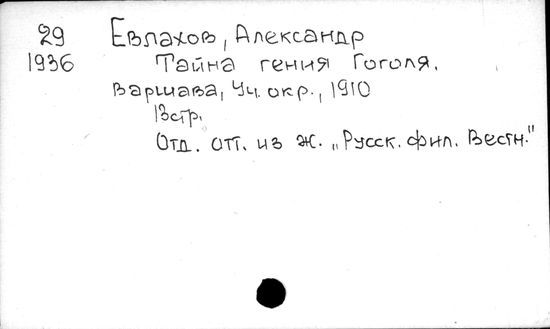 29 Евлахов, Александр
1936 Тайна гения Гоголя.
Варшава, Уч. окр., 1910
13стр.
Отд. отт. из ж. „Русск. фил. Вестн."